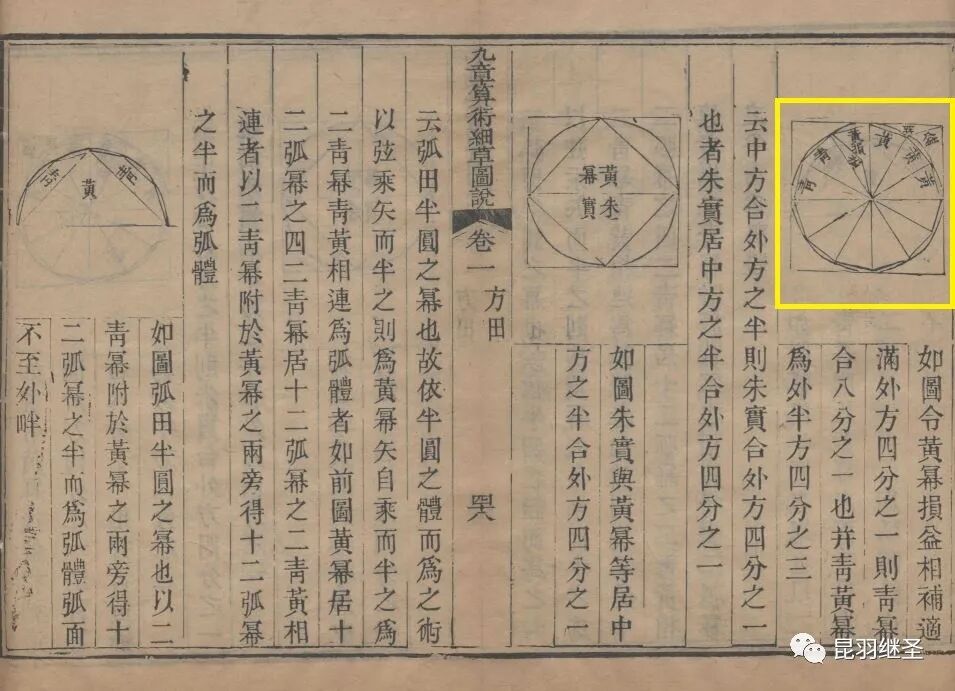 青 青 黃 黃 黃
如圖令黃冪損益相補適
滿外方四分之一則青冪
合八分之一也并青黃冪
爲外半方四分之三
云中方合外方之半則朱實合外方四分之一
也者朱實居中方之半合外方四分之一
黃冪
朱實
如圖朱實與黃冪等居中
方之半合外方四分之一
九章算術細草圖說 卷一 方田
云弧田半圓之冪也故依半圓之體而爲之術
以弦乘矢而半之則爲黃冪矢自乘而半之爲
二青冪青黃相連爲弧體者如前圖黃冪居十
二弧冪之四二青冪居十二弧冪之二青黃相
連者以二青冪附於黃冪之兩旁得十二弧冪
之半而爲弧體
青 黃 青
如圖弧田半圓之冪也以二
青冪附於黃冪之兩旁得十
二弧冪之半而爲弧體弧面
不至外畔
昆羽继圣